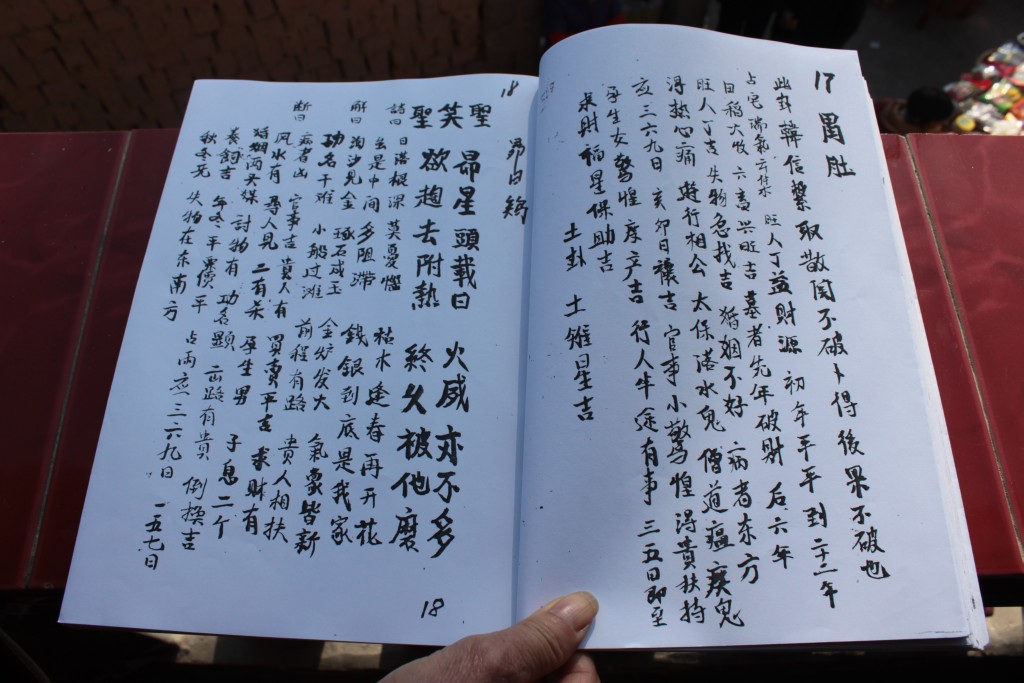 17 胃肚
此卦韓信繫取散関不破卜得後果不破也
占宅瑞氣云付木 旺人丁益財源 初年平平到二十二年
日稻大收 六畜兴旺吉 墓者先年破財 后六年
旺人丁吉 失物急找吉 婚姻不好 病者东方
得热心痛 遊行相公 太保落水鬼 僧道瘟疾鬼
亥三六九日 亥卯日禳吉 官事小驚惶 得貴扶持
孕生女驚惶 度产吉 行人牛途有事 三五日即至
求財福星保助吉
土卦 土雉星吉
18 昴白鷄
聖笑聖 昴星頭載日 火威亦不多
欲趋去附熱 終久被他磨
詩曰 日落根深莫憂慳 枯木逢春再开花
出是中间多阻滞 錢銀到底是我家
解曰 沟沙见金 琢石成玉 金炉发火 氣象皆新
功名干难 小船过滩 前程有路 贵人相扶
断曰 病者凶 官事吉 貴人有 買賣平吉 求財有
风水有 尋人見 二有杀 孕生男 子息二个
婚姻两头媒 討物有 功名顕 出路有貴 倒換吉
養飼吉 年冬平 價平 占雨亥三六九日 一五七日
秋冬死 失物在东南方
18